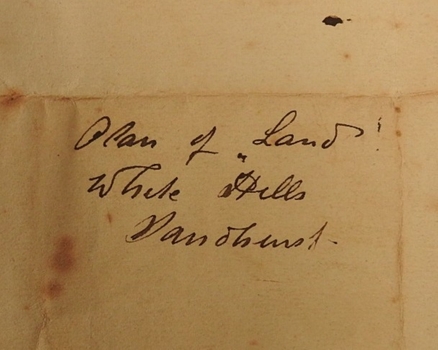 Plan of Land
White Hills
Sandhurst